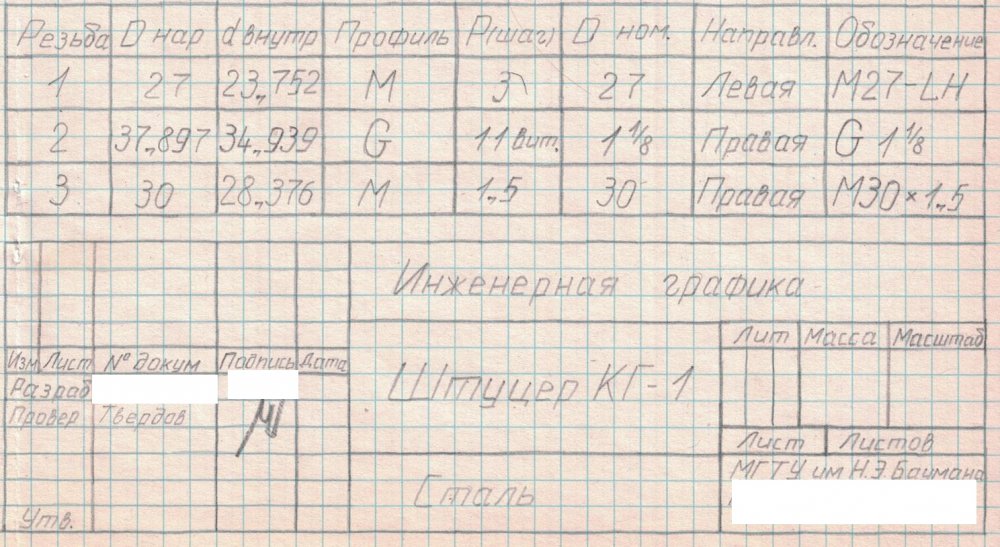 Резьба D нар d внутр Профиль P(шаг) D ном. Направл. Обозначение
1 27 23,752 М 3 27 Левая М27-LH
2 37,897 34,939 G 11 вит. 1 1/8 Правая G 1 1/8
3 30 28,376 М 1,5 30 Правая М30×1,5
Инженерная графика
Лит Масса Масштаб
Изм Лист № докум Подпись Дата
Разраб
Штуцер КГ-1
Провер Твердов
Лист Листов
МГТУ им Н.Э. Баумана
Сталь
Утв.